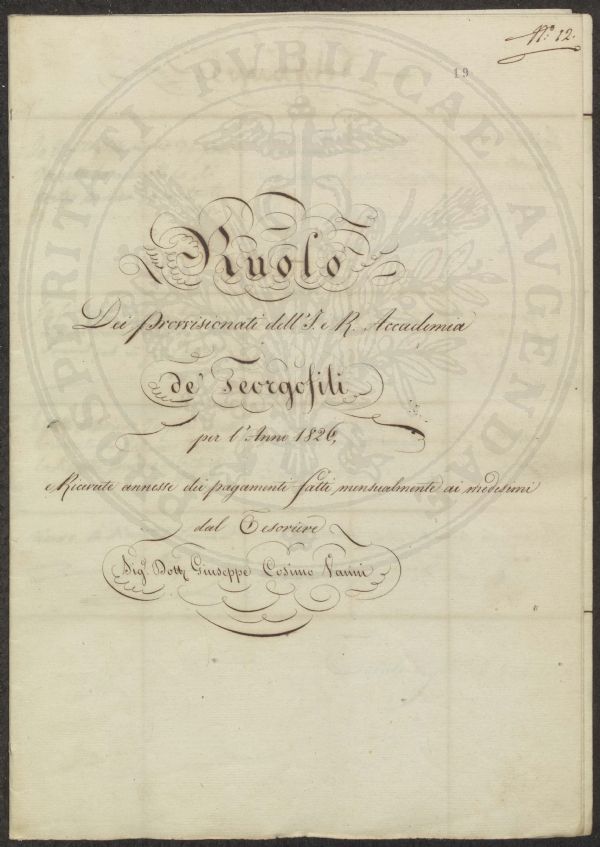 N.º 12.
19
PROSPERITATI PUBLICAE AUGENDAE
Ruolo
Dei Provvisionati dell' I. e R. Accademia
de' Georgofili
per l'Anno 1826,
e Ricevute annesse dei pagamenti fatti mensualmente ai medesimi
dal Tesoriere
Sig.r Dott.r Giuseppe Cosimo Vanni